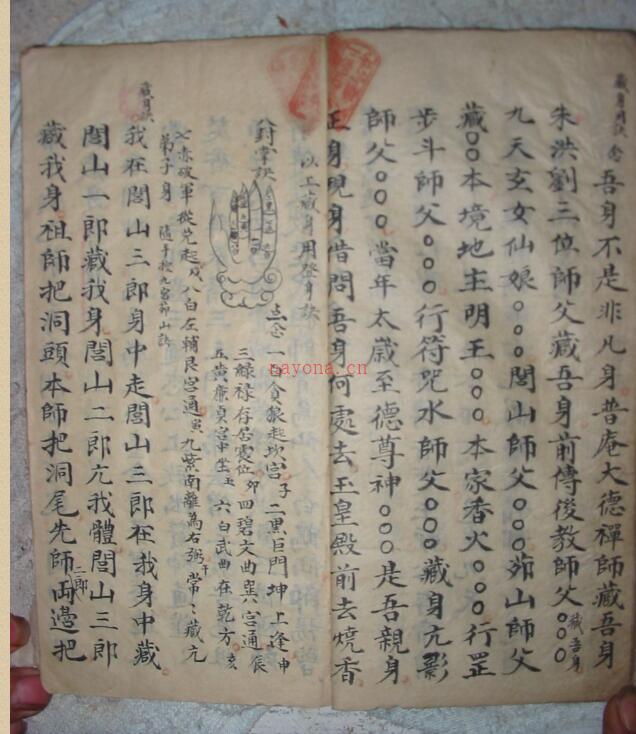 藏身用訣 念
吾身不是非凡身普庵大德禪師藏吾身
朱洪劉三位師父藏吾身前傳後教師父○○○藏吾身
九天玄女仙娘○○○閭山師父○○○茆山師父
藏○○本境地主明王○○○本家香火○○○行罡
步斗師父○○○行符咒水師父○○○藏身亢影
師父○○○當年太歲至德尊神○○○是吾親身
正身現身借問吾身何處去玉皇殿前去燒香
以上藏身用發身訣
封掌訣
点念 一白貪狼起坎宮子 二黑巨門坤上逢申
三綠祿存居震位卯 四碧文曲巽宮通辰
五黃廉貞宮中坐玉 六白武曲在乾方亥
七赤破軍從兌起戌 八白左輔艮宮通寅 九紫南離為右弼午 常〻藏亢
弟子身 隨手按九宮茆山訣
藏身訣
我在閭山三郎身中走閭山三郎在我身中藏
閭山一郎藏我身閭山二郎亢我體閭山三郎
二郎
藏我身祖師把洞頭本師把洞尾先師両邊把
nayona.cn